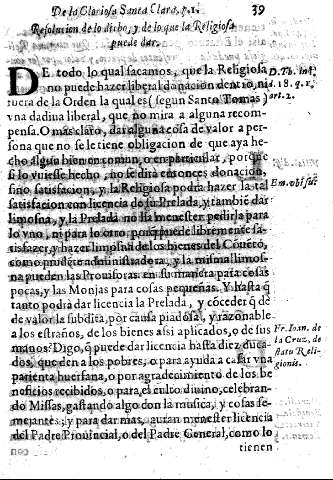 De la Gloriosa Santa Clara, p.1. 39
Resolucion de lo dicho, y de lo que la Religiosa
puede dar.
DE todo lo qual sacamos, que la Religiosa
no puede hazer liberal donacion dentro, ni
fuera de la Orden la qual es (segun Santo Tomas)
vna dadiua liberal, que no mira a alguna recom-
pensa. O mas claro, dar alguna cosa de valor a per-
sona que no se le tiene obligacion de que aya he-
cho algun bien en comun, o en particular, porque
si lo vuiesse hecho, no se dirá entonces donacion,
sino satisfacion, y la Religiosa podrá hazer la tal
satisfacion con licencia de su Prelada, y tambiē dar
limosna, y la Prelada no ha menester pedirla para
lo vno, ni para lo otro, porque puede libremente sa-
tisfazer, y hazer limosna de los bienes del Cōuēto,
como prudēte administradora, y la misma limos-
na pueden las Prouisoras en su manera para cosas
pocas, y las Monjas para cosas pequeñas. Y hasta q̄
tanto podrá dar licencia la Prelada, y cōceder q̄ dé
de valor la subdita, por causa piadosa, y razonable
a los estraños, de los bienes assi aplicados, o de sus
manos? Digo, q̄ puede dar licencia hasta diez duca-
dos, que den a los pobres, o para ayuda a casar vna
parienta huerfana, o por agradecimiento de los be
neficios recibidos, o para el culto diuino, celebran-
do Missas, gastando algo con la musica, y cosas se-
mejantes; y para dar mas, auran menester licencia
del Padre Prouincial, o del Padre General, como lo
tienen
D. Th.
q. 18. q. 1.
art. 2.
Em. vbi sup.
Fr. Ioan. de
la Cruz, de
statu Reli-
gionis.